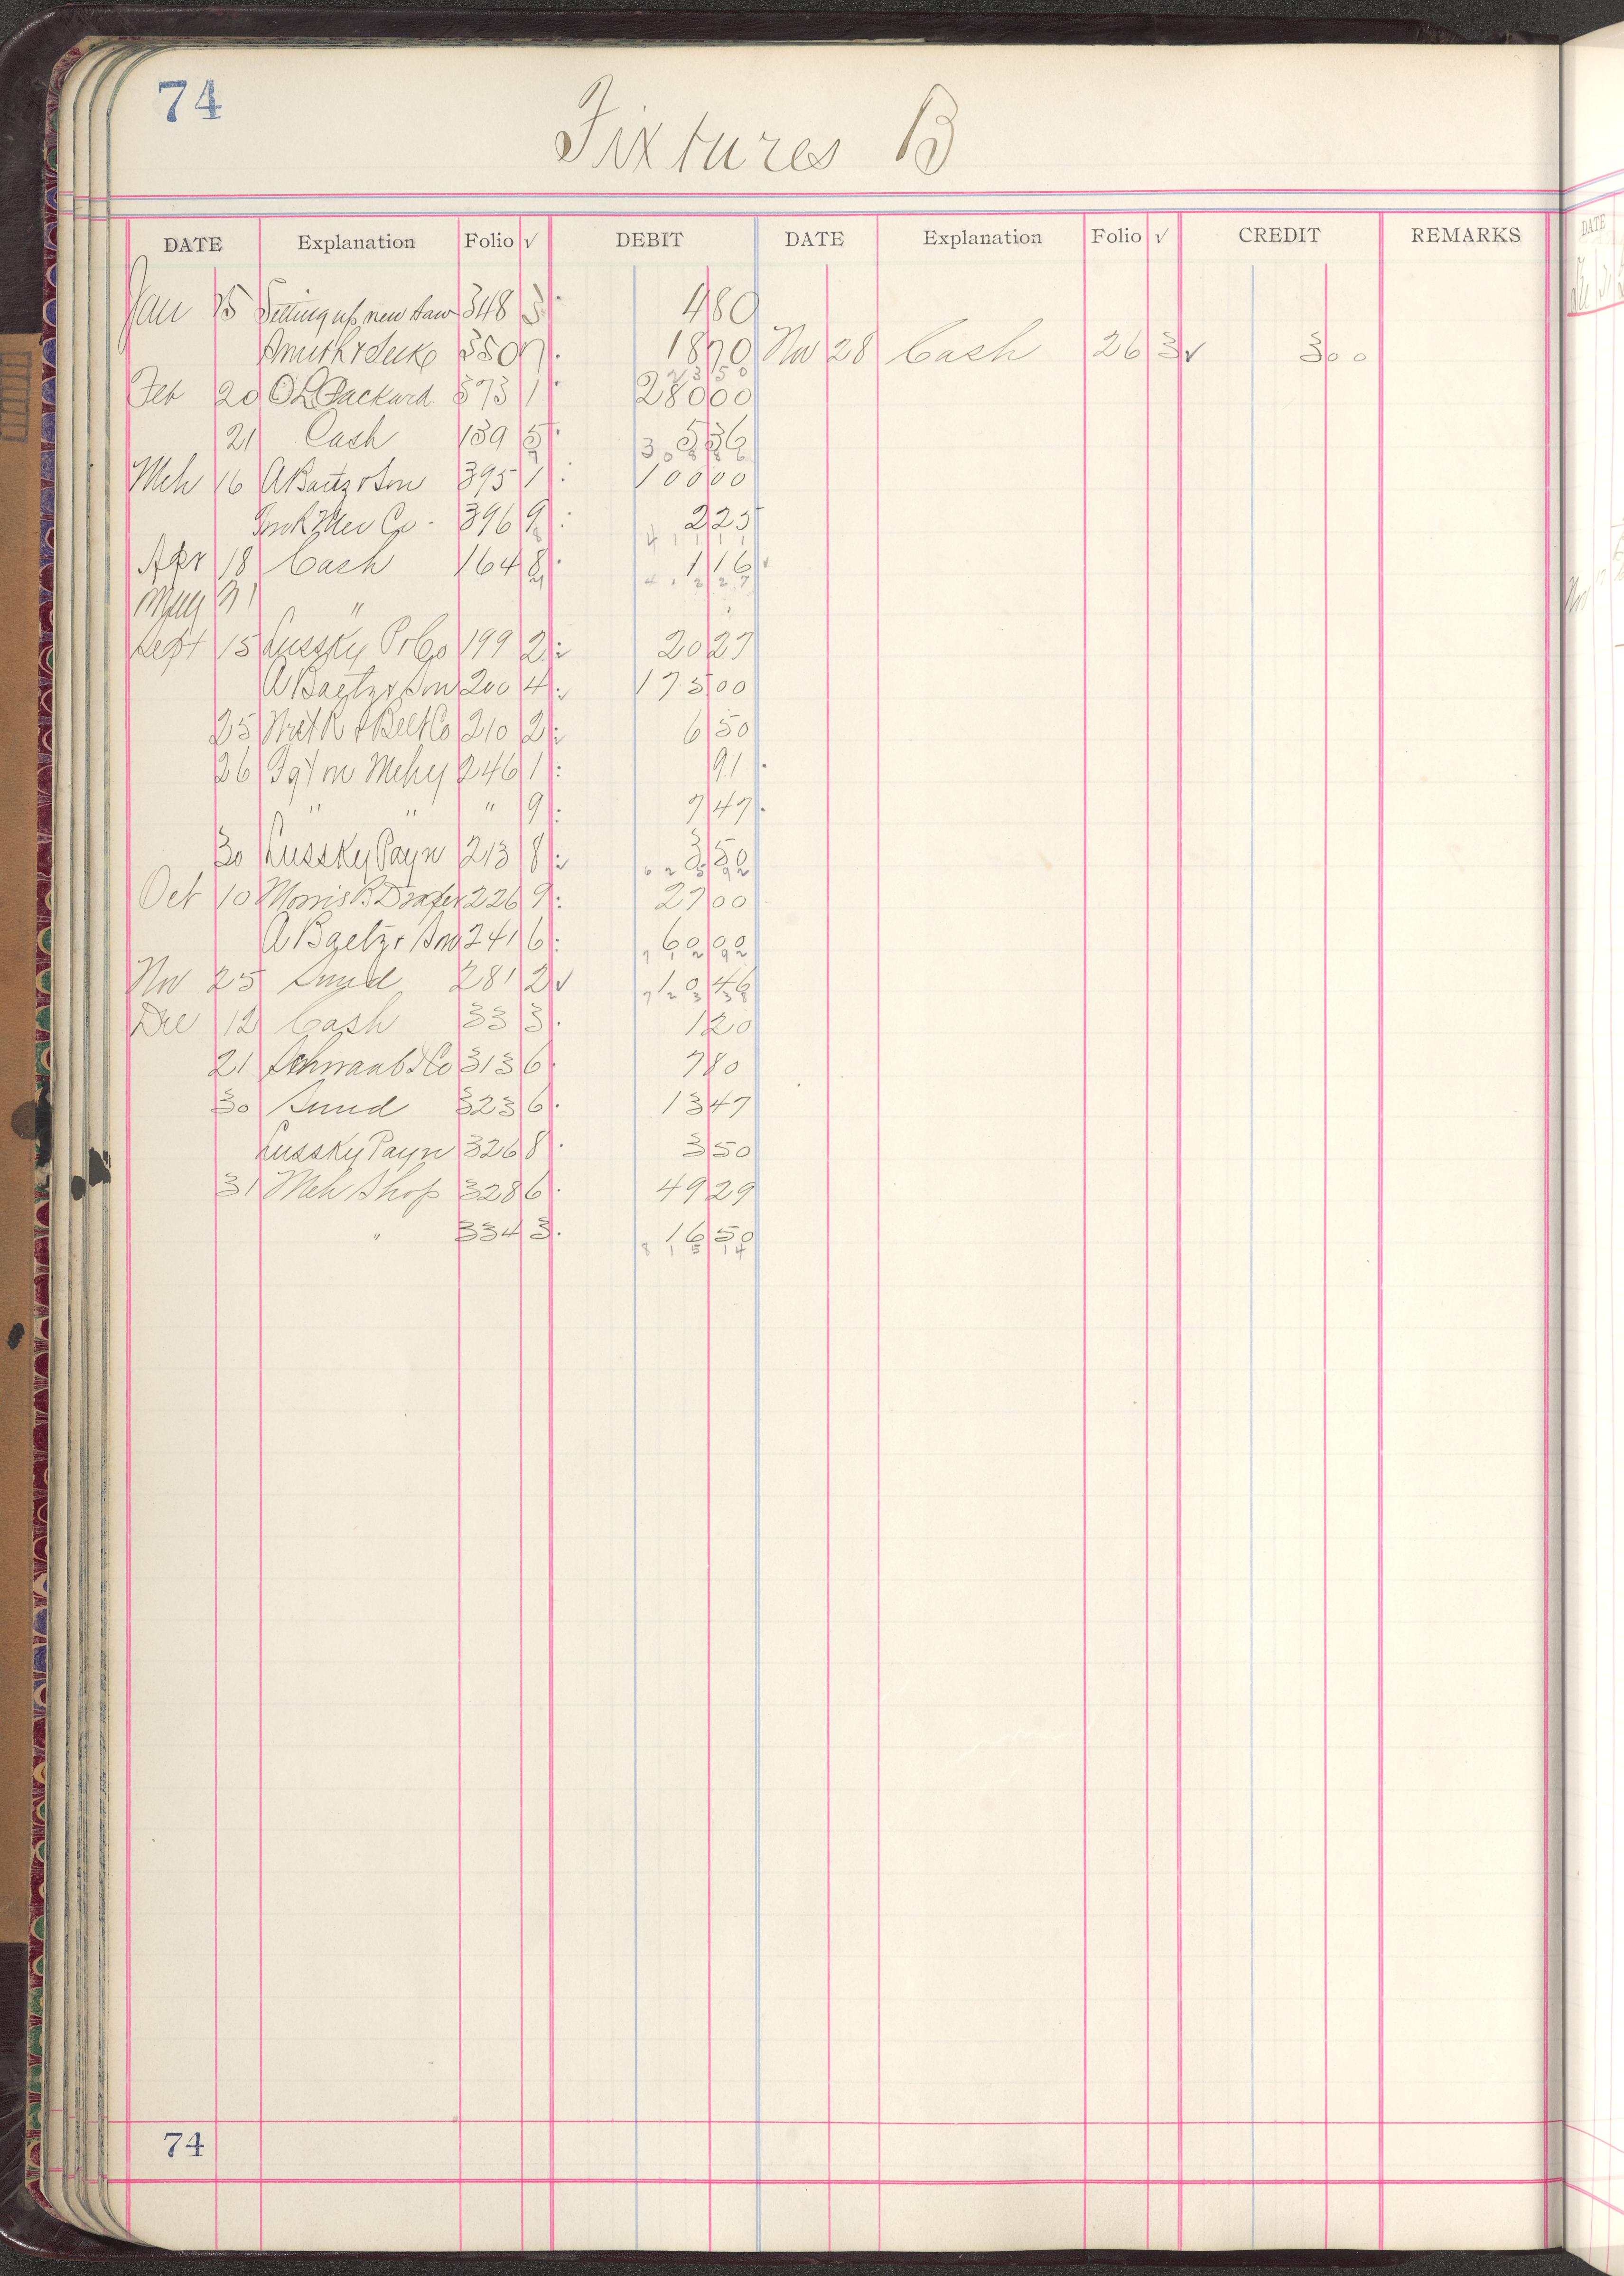 74
Fixtures B
DATE Explanation Folio √ DEBIT DATE Explanation Folio √ CREDIT REMARKS
Jan 15 Setting up new Saw 348 3 4 80
350 7 18 70 Nov 28 Cash 26 3 √ 3 00
23 50
Feb 20 O L Packard 373 1 280 00
21 Cash 139 5 5 36
308 86
Mch 16 A Baetz & Son 395 1 100 00
396 9 2 25
411 11
Apr 18 Cash 164 8 1 16
412 27
May 31 "
Sept 15 Lussky P & Co 199 2 20 27
A Baetz & Son 200 4 175 00
25 R & Belt Co 210 2 6 50
26 Mchy 246 1 91
" " " 9 7 47
30 Lussky Payn 213 8 3 50
625 92
Oct 10 Morris B Draper 226 9 27 00
A Baetz & Son 241 6 60 00
712 92
Nov 25 Sund 281 2 √ 10 46
723 38
Dec 12 Cash 33 3 1 20
21 Schwaab & Co 313 6 7 80
30 Sund 323 6 13 47
Lussky Payn 326 8 3 50
31 Mch Shop 328 6 49 29
" 334 3 16 50
815 14
74